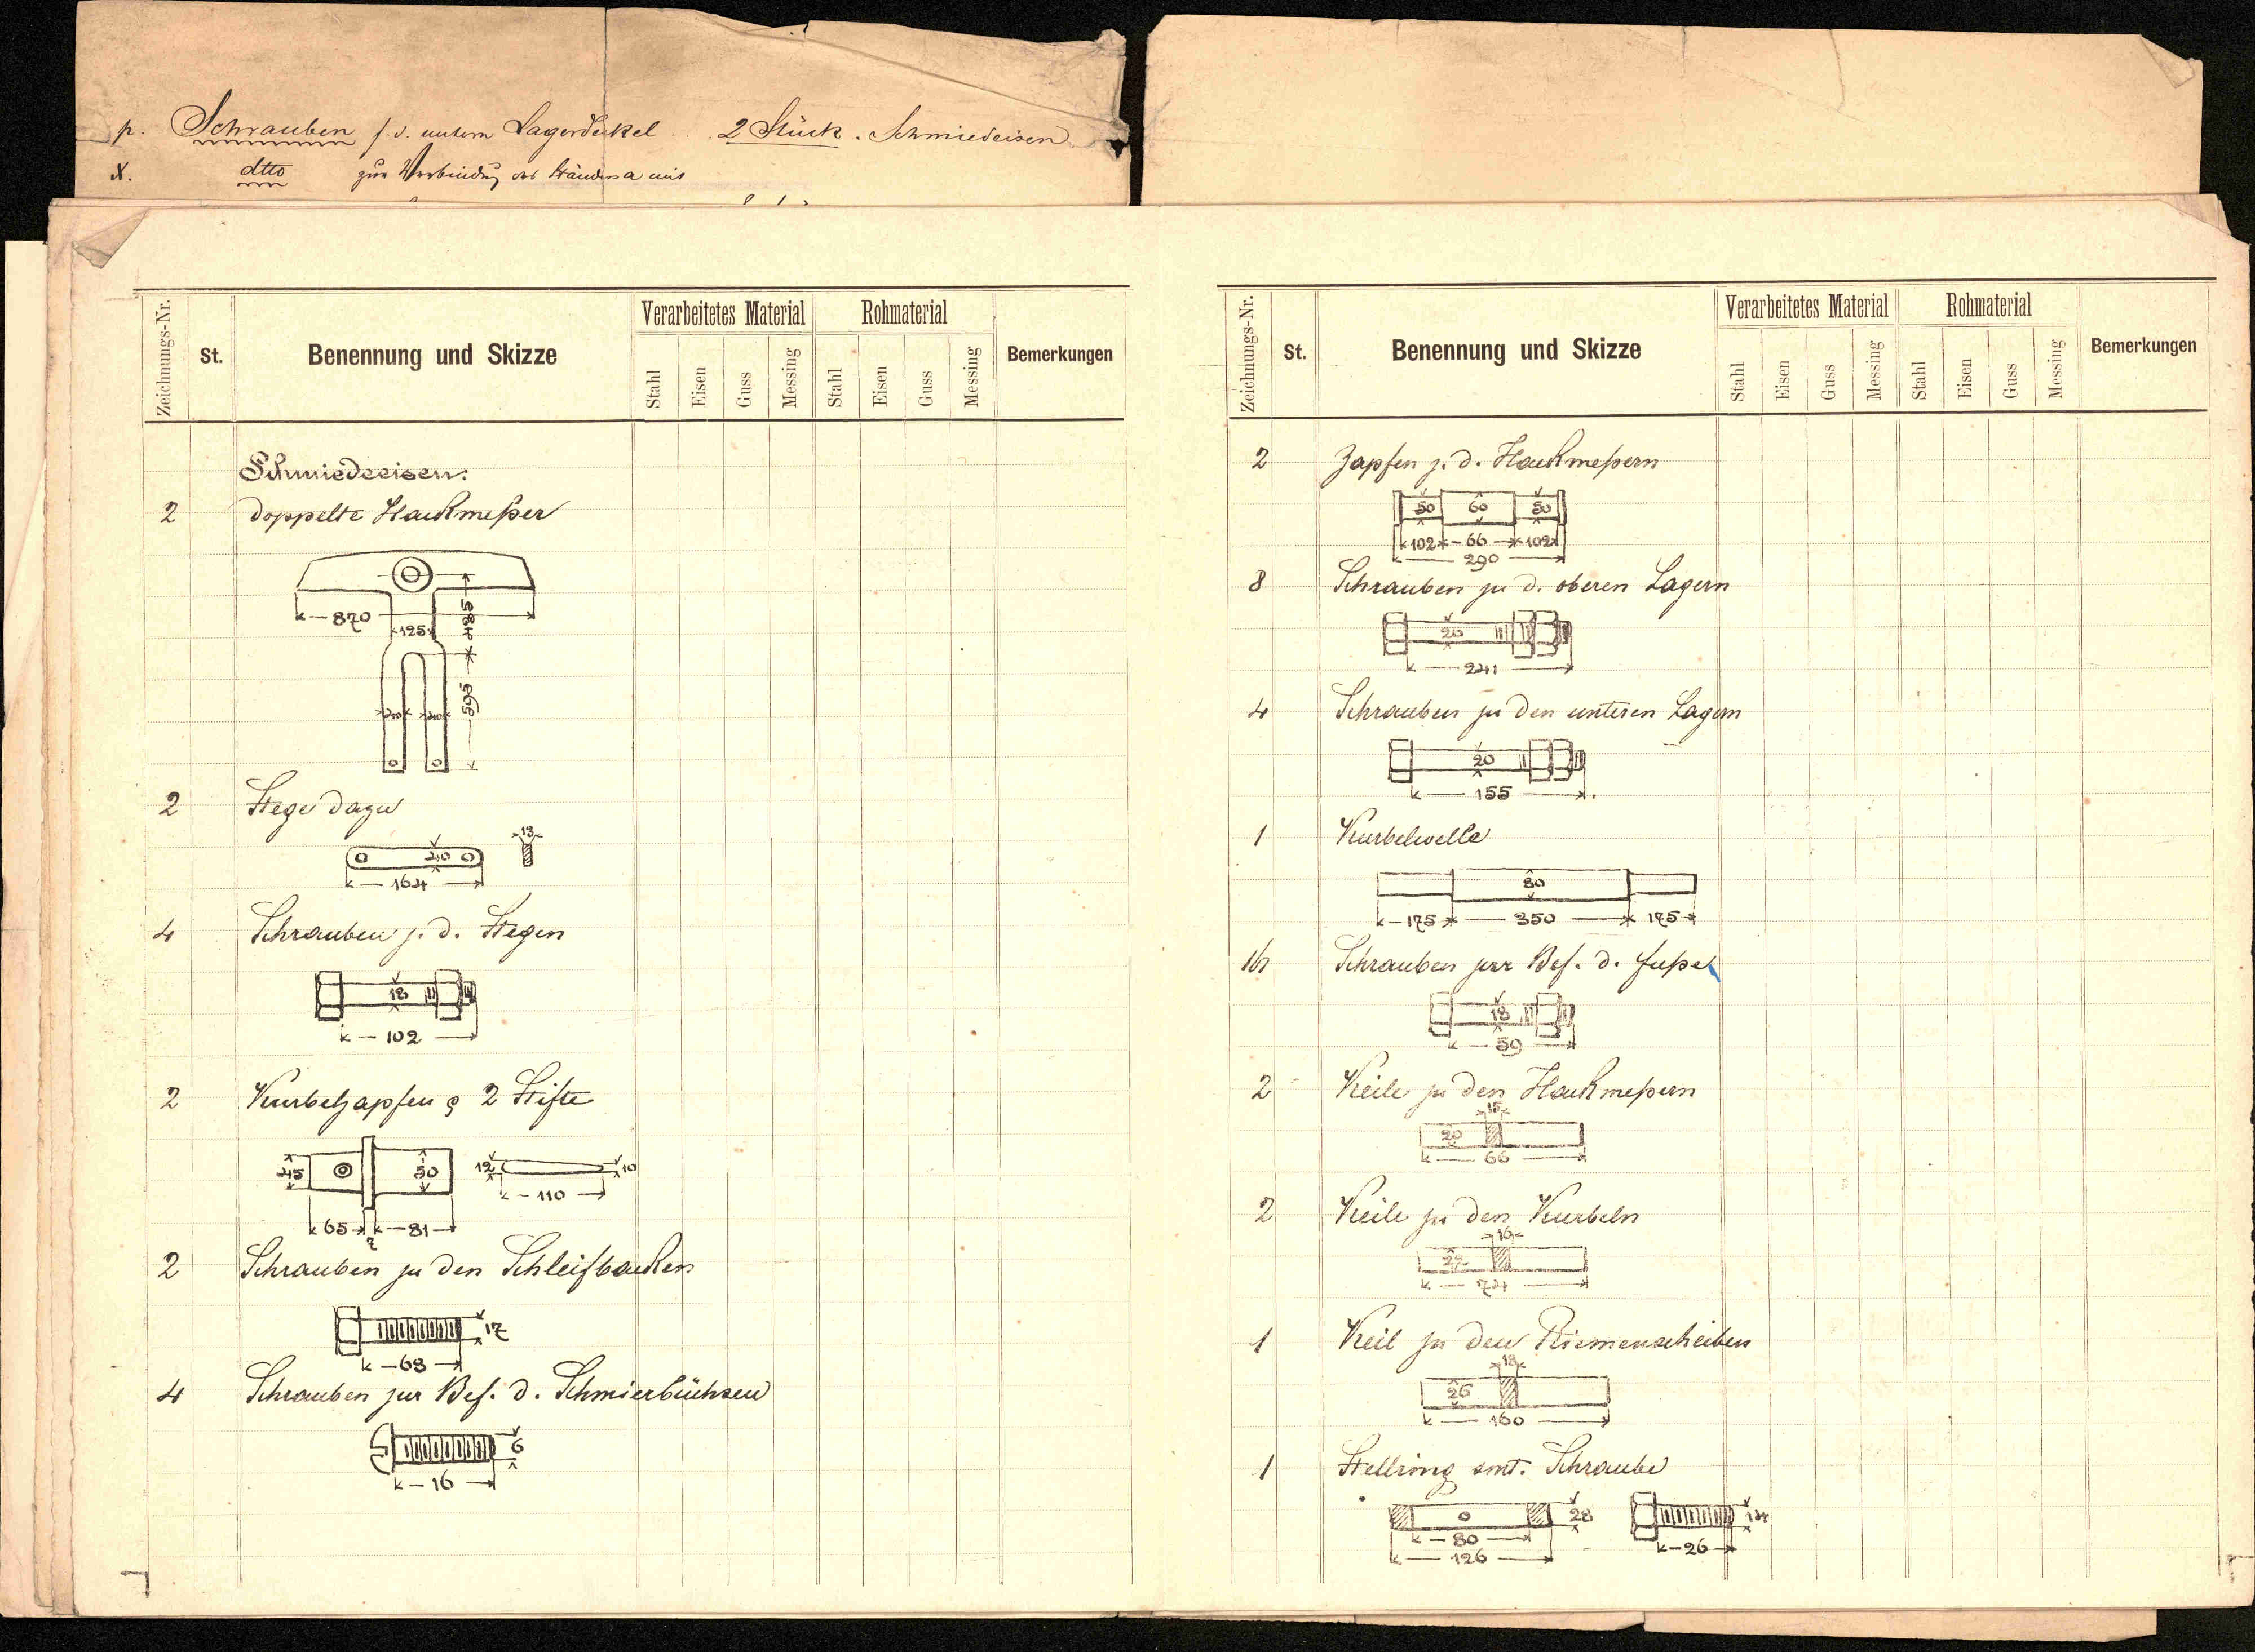 p. Schrauben f. d. untern Lagerdeckel . . 2 Stück . Schmiedeisen
x. dtto zur Verbindung des Ständers a mit
Zeichnungs-Nr.
St.
Benennung und Skizze
Verarbeitetes Material
Rohmaterial
Bemerkungen
Stahl Eisen Guss Messing Stahl Eisen Guss Messing
Schmiedeeisen:
2 doppelte Hackmeßer
870
125
485
595
40 40
2 Stege dazu
13
40
164
4 Schrauben z. d. Stegen
18
102
2 Kurbelzapfen & 2 Stifte
45 50 12 10
110
65 81
7
2 Schrauben zu den Schleifbacken
17
68
4 Schrauben zur Bef. d. Schmierbüchsen
6
16
Zeichnungs-Nr.
St.
Benennung und Skizze
Verarbeitetes Material
Rohmaterial
Bemerkungen
Stahl Eisen Guss Messing Stahl Eisen Guss Messing
2 Zapfen z. d. Hackmeßern
50 60 50
102 66 102
290
8 Schrauben zu d. oberen Lagern
20
241
4 Schrauben zu den unteren Lagern
20
155
1 Kurbelwelle
80
175 350 175
16 Schrauben zur Bef. d. Fuße
18
59
2 Keile zu den Hackmeßern
15
20
66
2 Keile zu den Kurbeln
16
74
1 Keil zu den Riemenscheiben
18
26
160
1 Stellring smt. Schraube
28 14
80
26
126